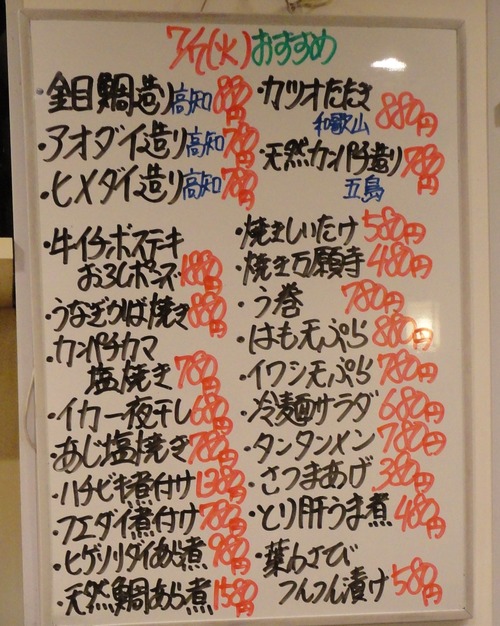 7/7(火)おすすめ
金目鯛造り高知880円
・アオダイ造り高知780円
・ヒメダイ造り高知780円
・牛イチボステキ
おろしポーズ1880円
・うなぎかば焼き880円
・カンパチカマ
塩焼き780円
・イカ一夜干し680円
・あじ塩焼き780円
・ハチビキ煮付け1280円
・フエダイ煮付け780円
・ヒゲソリダイあら煮980円
・天然鯛あら煮1580円
・カツオたたき
和歌山880円
・天然カンパチ造り780円
五島
・焼きしいたけ580円
・焼き万願寺480円
・う巻780円
・はも天ぷら880円
・イワシ天ぷら780円
・冷麺サラダ680円
・タンタンメン780円
・さつまあげ380円
・とり肝うま煮480円
・葉わさび
つんつん漬け580円